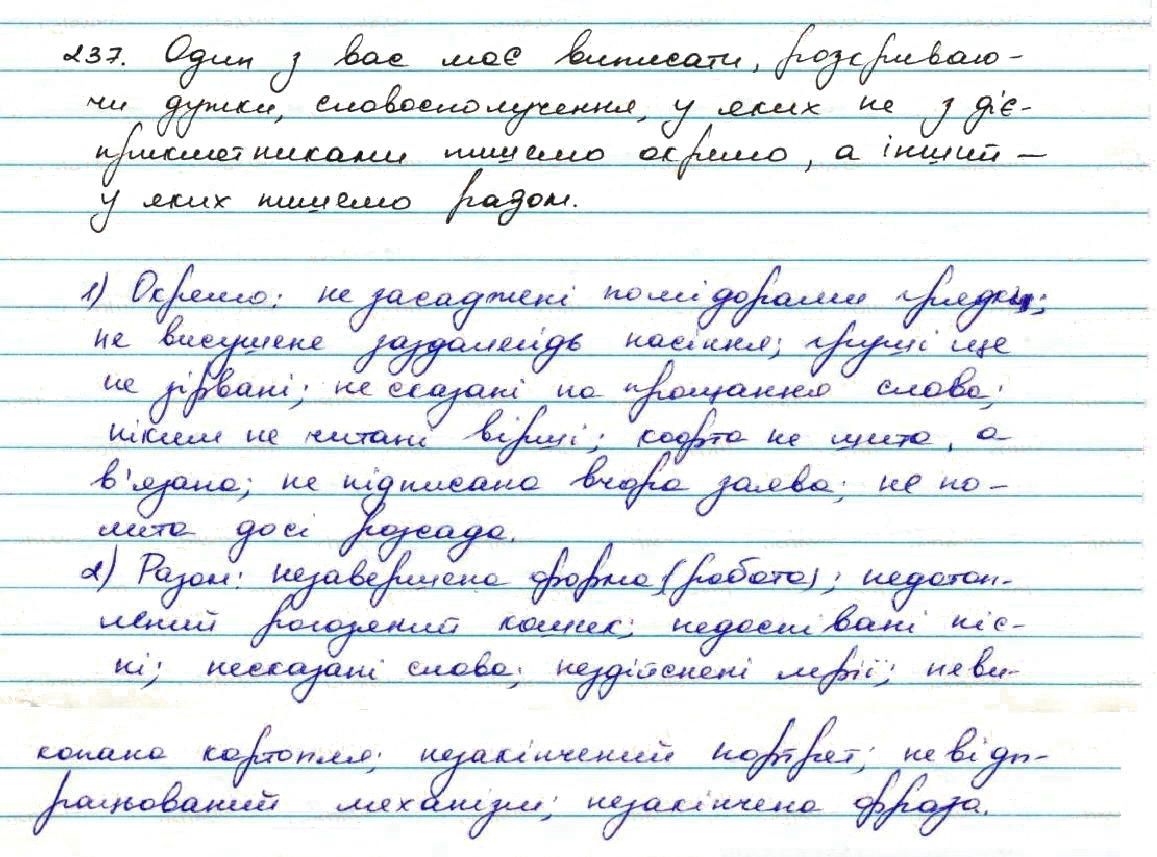 237. Один з вас має виписати, розкриваю-
чи дужки, словосполучення, у яких не з діє-
прикметниками пишемо окремо, а інший –
у яких пишемо разом.
1) Окремо: не засаджені помідорами грядки;
не висушене заздалегідь насіння; груші ще
не зірвані; не сказані на прощання слова;
ніким не читані вірші; кофта не шита, а
в'язана; не підписана вчора заява; не по-
лита досі розсада.
2) Разом: незавершена форма (робота); недотоп-
лений кошик; недоспівані піс-
ні; несказані слова; нездійснені мрії; неви-
копана картопля; незакінчений портрет; невідп-
рацьований механізм; незакінчена фраза.